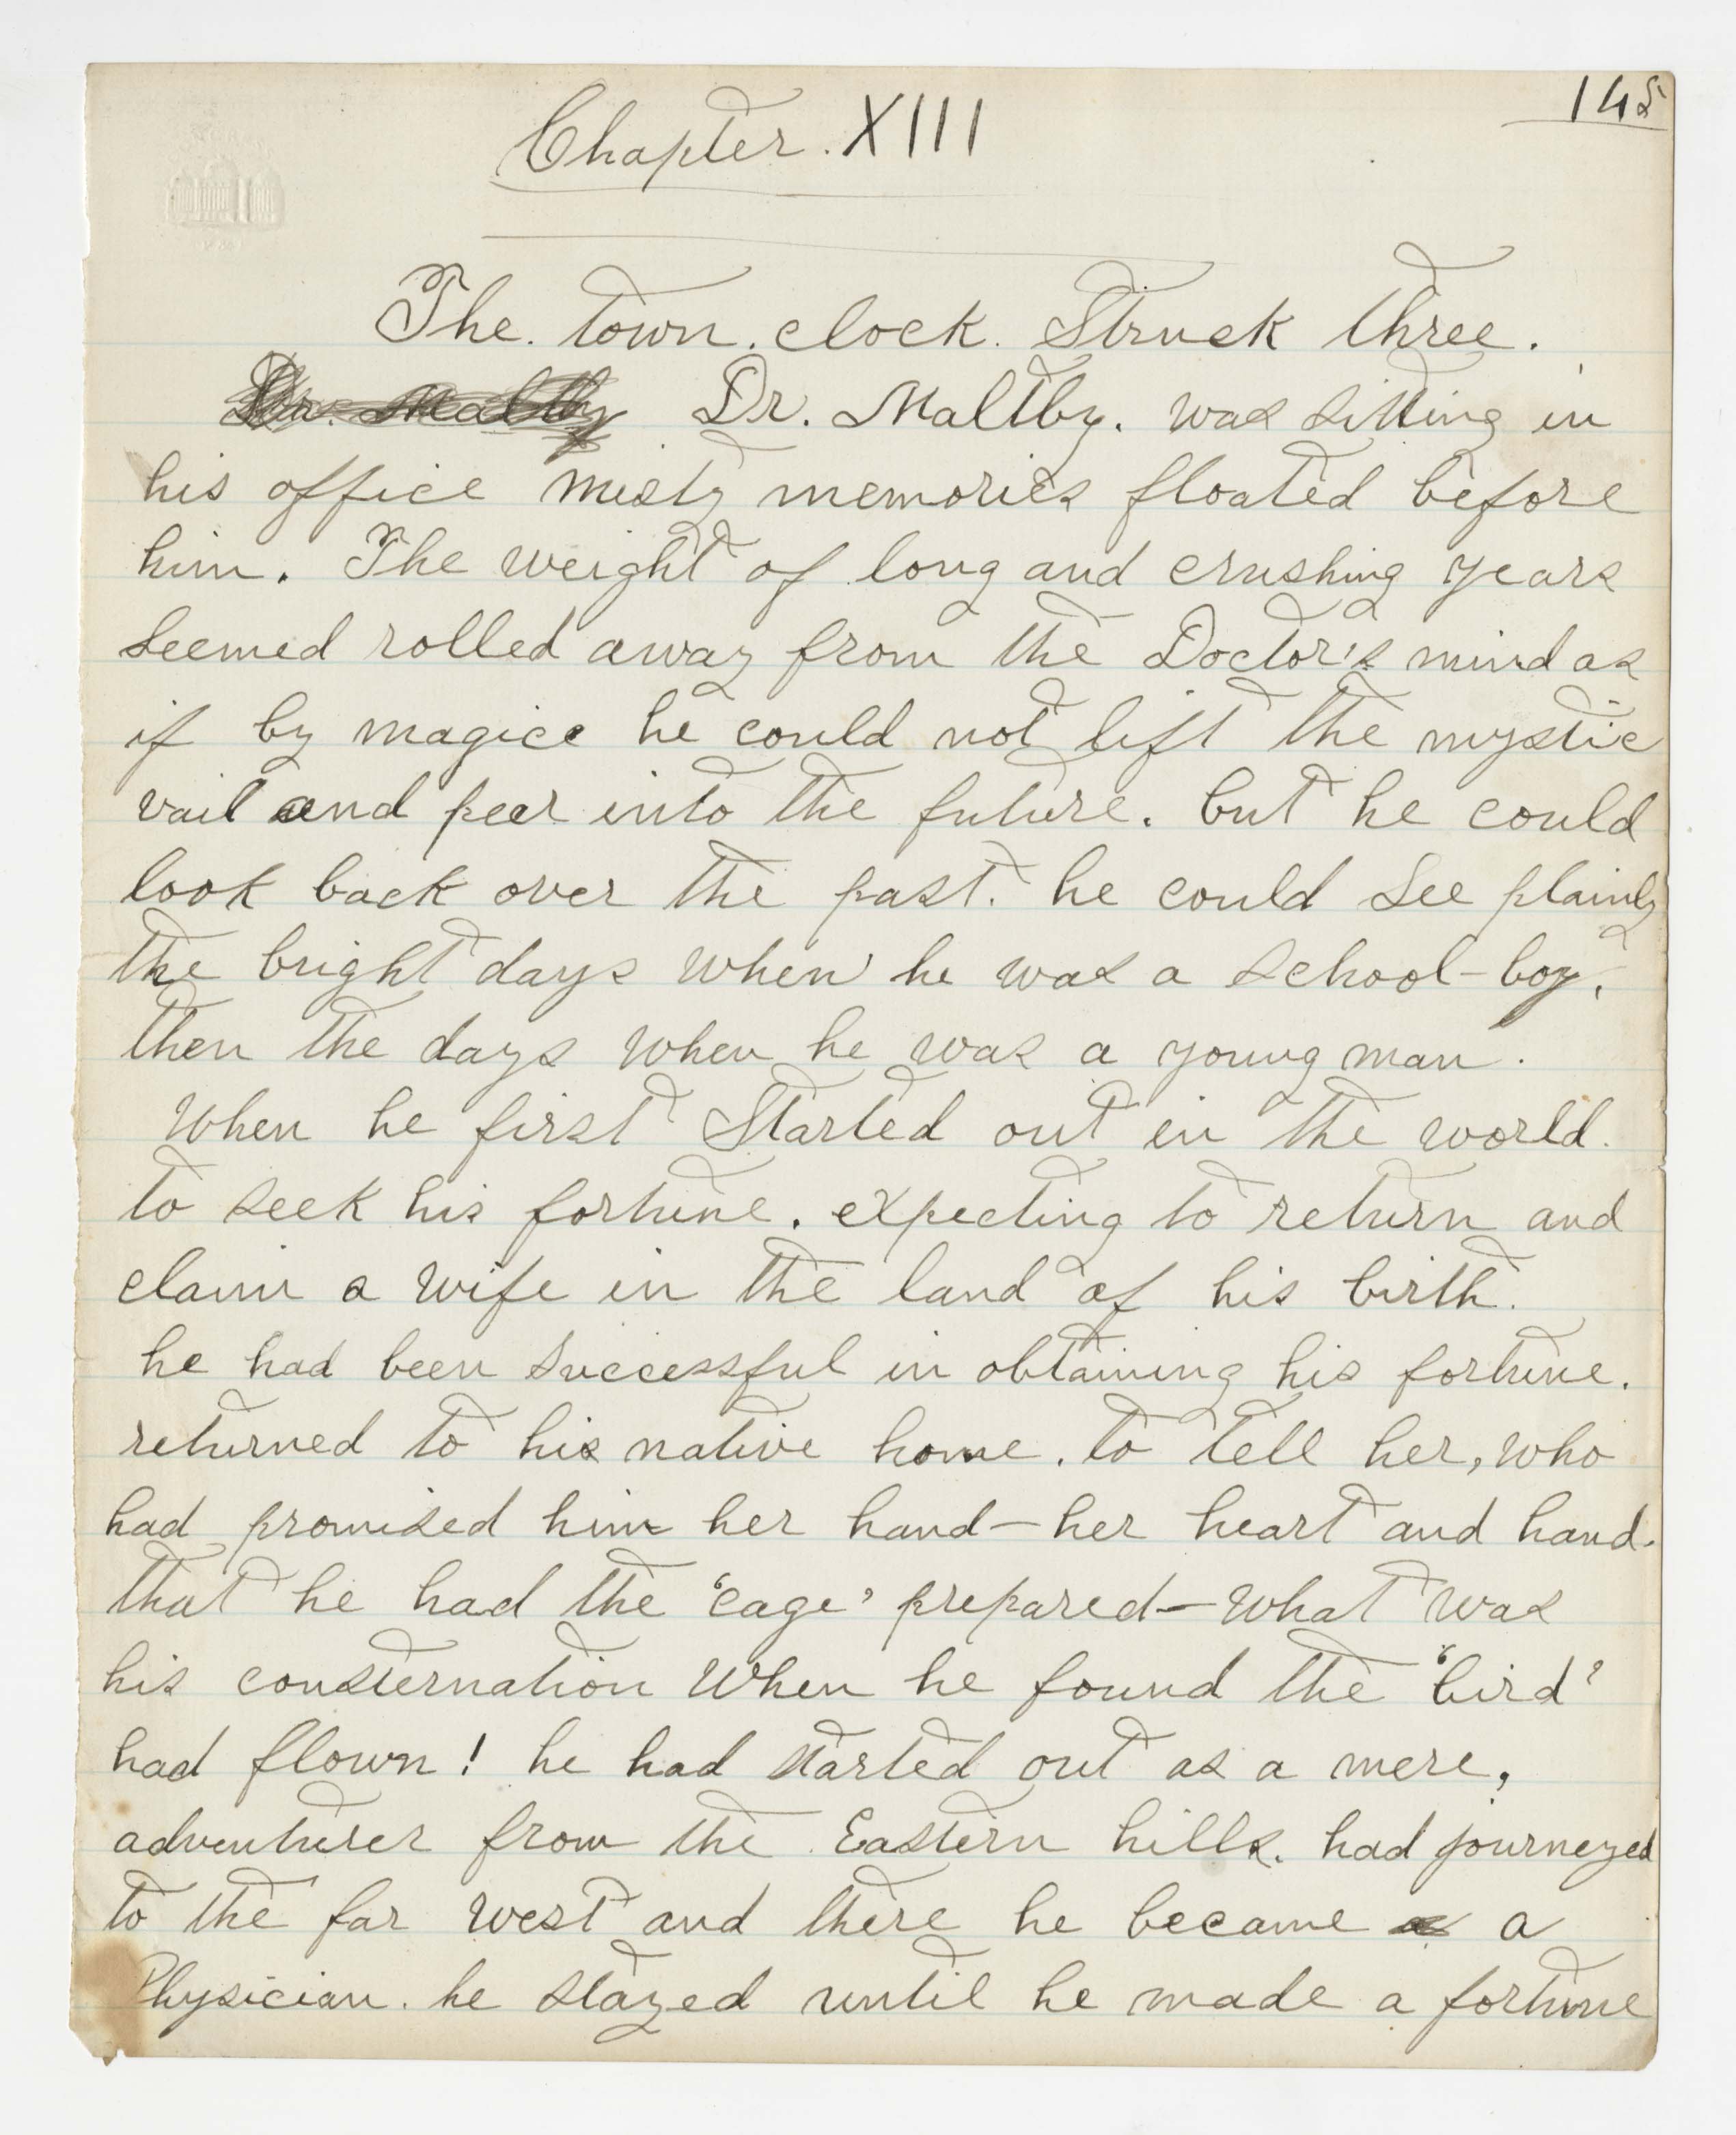 145
Chapter. XIII
The. town. clock. Struck three.
Dr. Maltby Dr. Maltby. was sitting in
his office misty memories floated before
him. The weight of long and crushing years
seemed rolled away from the Doctor's mind as
if by magice he could not lift the mystic
vail and peer into the future. but he could
look back over the past. he could see plainly
the bright days when he was a school-boy.
then the days when he was a young man.
When he first Started out in the world.
to seek his fortune. expecting to return and
claim a wife in the land of his birth.
he had been successful in obtaining his fortune.
returned to his native home. to tell her, who
had promised him her hand—her heart and hand.
that he had the 'cage' prepared—What was
his consternation When he found the 'bird'
had flown! he had started out as a mere,
adventurer from the Eastern hills. had journeyed
to the far west and there he became a
Physician. he stayed until he made a fortune